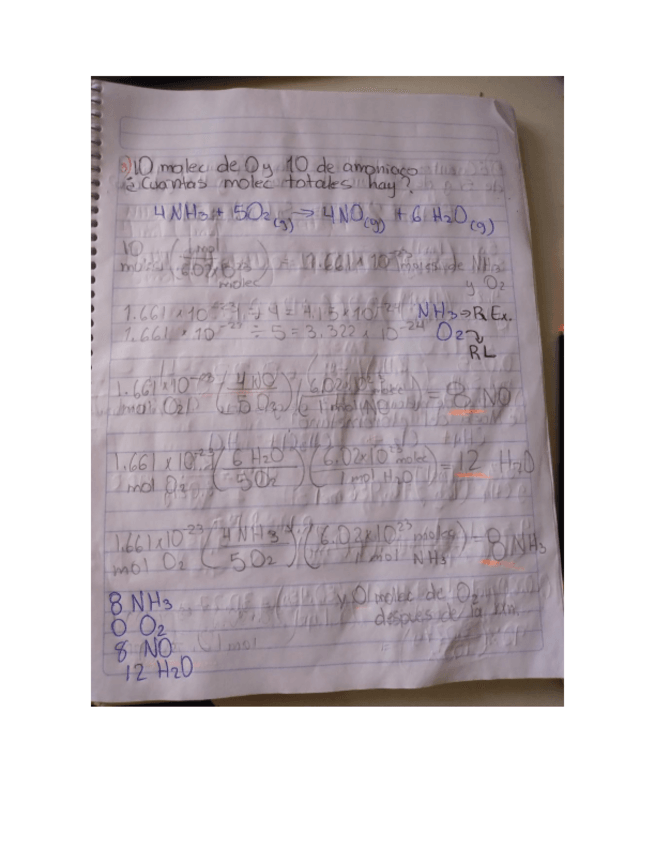 10 molec de O y 10 de amoniaco
¿Cuantas molec totales hay?
4 NH₃ + 5O₂(g) → 4NO(g) + 6 H₂O(g)
10 molec (1 mol / 6.02x10²³ molec) = 1.661x10⁻²³ moles de NH₃ y O₂
1.661x10⁻²³ ÷ 4 = 4.15x10⁻²⁴ NH₃ → R Ex.
1.661x10⁻²³ ÷ 5 = 3.322x10⁻²⁴ O₂ → RL
1.661x10⁻²³ mol O₂ (4 NO / 5 O₂) (6.02x10²³ molec / 1 mol NO) = 8 NO
1.661x10⁻²³ mol O₂ (6 H₂O / 5 O₂) (6.02x10²³ molec / 1 mol H₂O) = 12 H₂O
1.661x10⁻²³ mol O₂ (4 NH₃ / 5 O₂) (6.02x10²³ molec / 1 mol NH₃) = 8 NH₃
y 0 molec de O₂
despues de la
8 NH₃
0 O₂
8 NO
12 H₂O